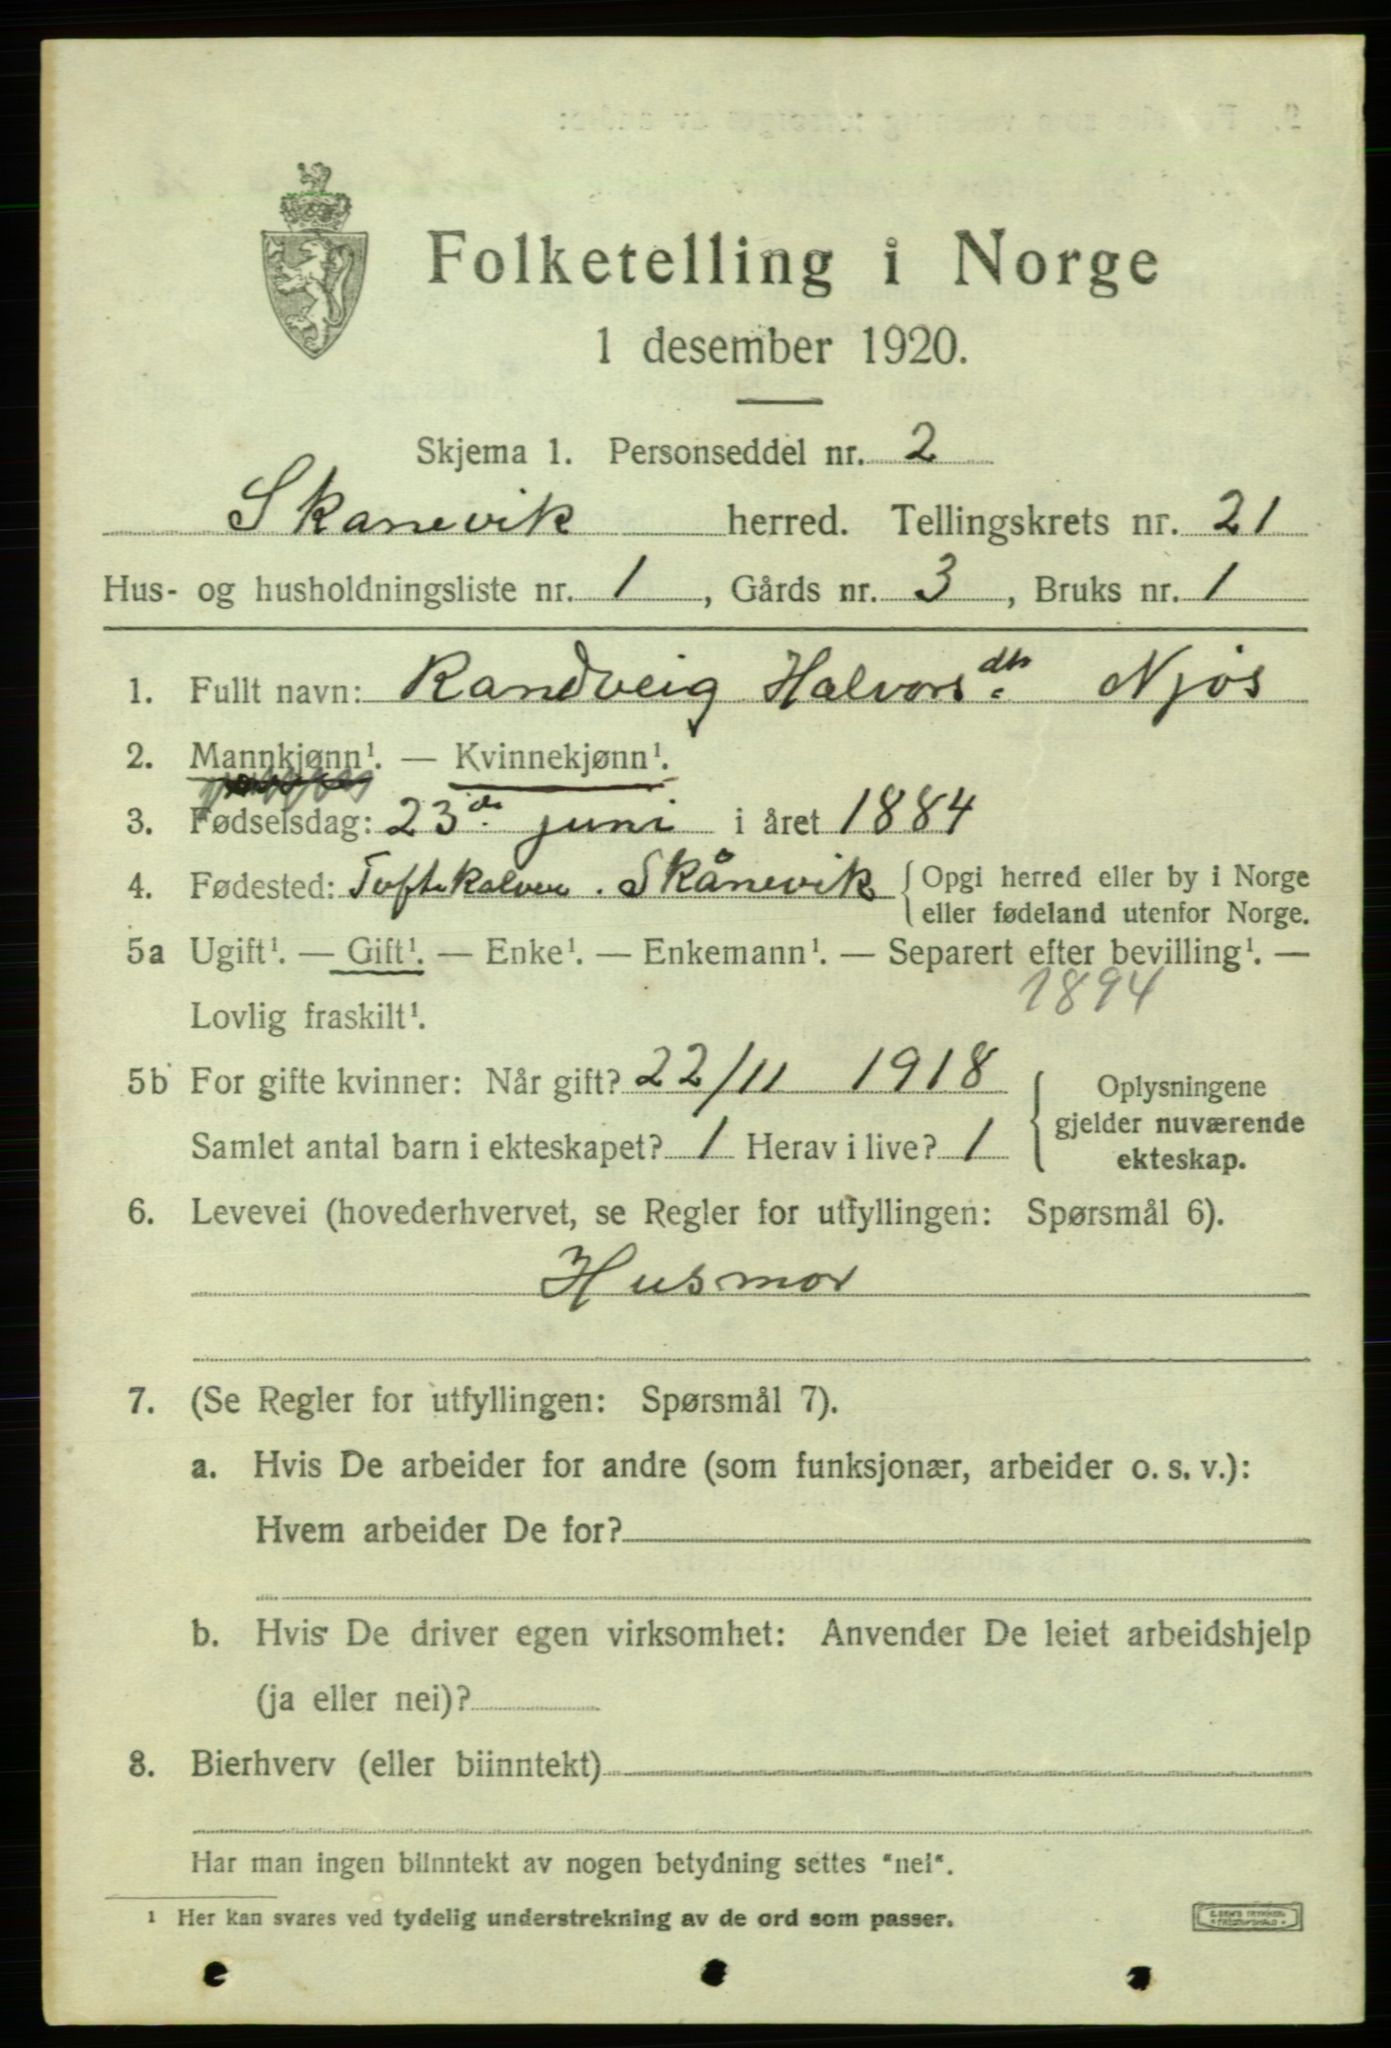 Folketelling i Norge
1 desember 1920.
Skjema 1. Personseddel nr. 2
Skanevik herred. Tellingskrets nr. 21
Hus- og husholdningsliste nr. 1, Gårds nr. 3, Bruks nr. 1
1. Fullt navn: Randveig Halvorsdtr Njøs
2. Mannkjønn¹. — Kvinnekjønn¹.
3. Fødselsdag: 23de juni i året 1884
4. Fødested: Toftekalven. Skånevik { Opgi herred eller by i Norge
eller fødeland utenfor Norge.
5a Ugift¹. — Gift¹. — Enke¹. — Enkemann¹. — Separert efter bevilling¹. —
Lovlig fraskilt¹. 1894
5b For gifte kvinner: Når gift? 22/11 1918 { Oplysningene
gjelder nuværende
Samlet antal barn i ekteskapet? 1 Herav i live? 1
ekteskap.
6. Levevei (hovederhvervet, se Regler for utfyllingen: Spørsmål 6).
Husmor
7. (Se Regler for utfyllingen: Spørsmål 7).
a. Hvis De arbeider for andre (som funksjonær, arbeider o. s. v.):
Hvem arbeider De for?
b. Hvis De driver egen virksomhet: Anvender De leiet arbeidshjelp
(ja eller nei)?
8. Bierhverv (eller biinntekt)
Har man ingen biinntekt av nogen betydning settes "nei".
¹ Her kan svares ved tydelig understrekning av de ord som passer.